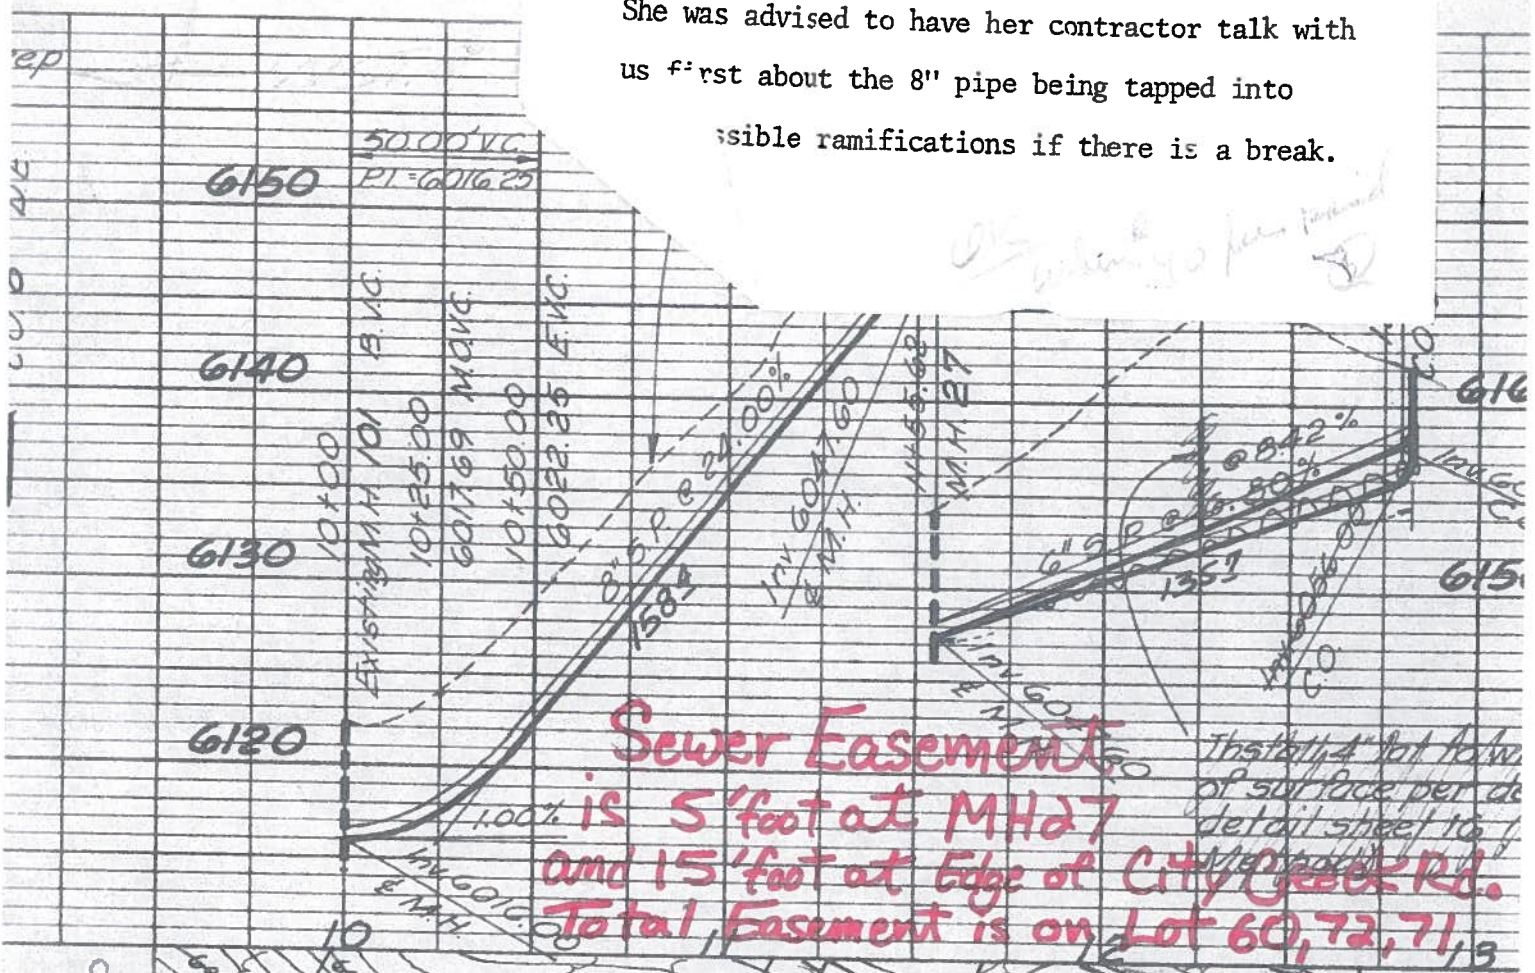 She was advised to have her contractor talk with
us first about the 8" pipe being tapped into
ssible ramifications if there is a break.
ep
50.00' V.C.
P.I. = 6016.25
6150
6140
6130
6120
10+00
Existing M.H. 101 B.V.C.
10+25.00
6017.69 M.O.V.C.
10+50.00
6022.25 E.V.C.
8" S.P. @ 24.00%
158'±
Inv 6047.60
¢ M.H.
11+55.68
M.H. 27
@ 8.42%
6" S.P. @ 6.80%
135'±
C.O.
616
615
Inv 60
Inv 6056.00
C.O.
Inv 60
¢ M.H.
1.00%
Inv 6016.00
¢ M.H.
Install 4" fat
of surface per de
detail sheet 10
Sewer Easement
is 5'foot at MH27
and 15'foot at Edge of City Creek Rd.
Total Easement is on Lot 60,72,71,
10
12
13